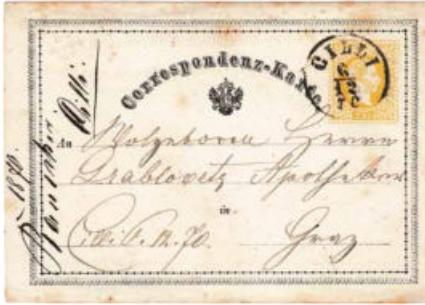 Correspondenz-Karte
CILLI
An Wolgeboren Herrn
Drablovitz Apotheker
in
Cilli 6. 12. 70. Graz
1870.
Cilli